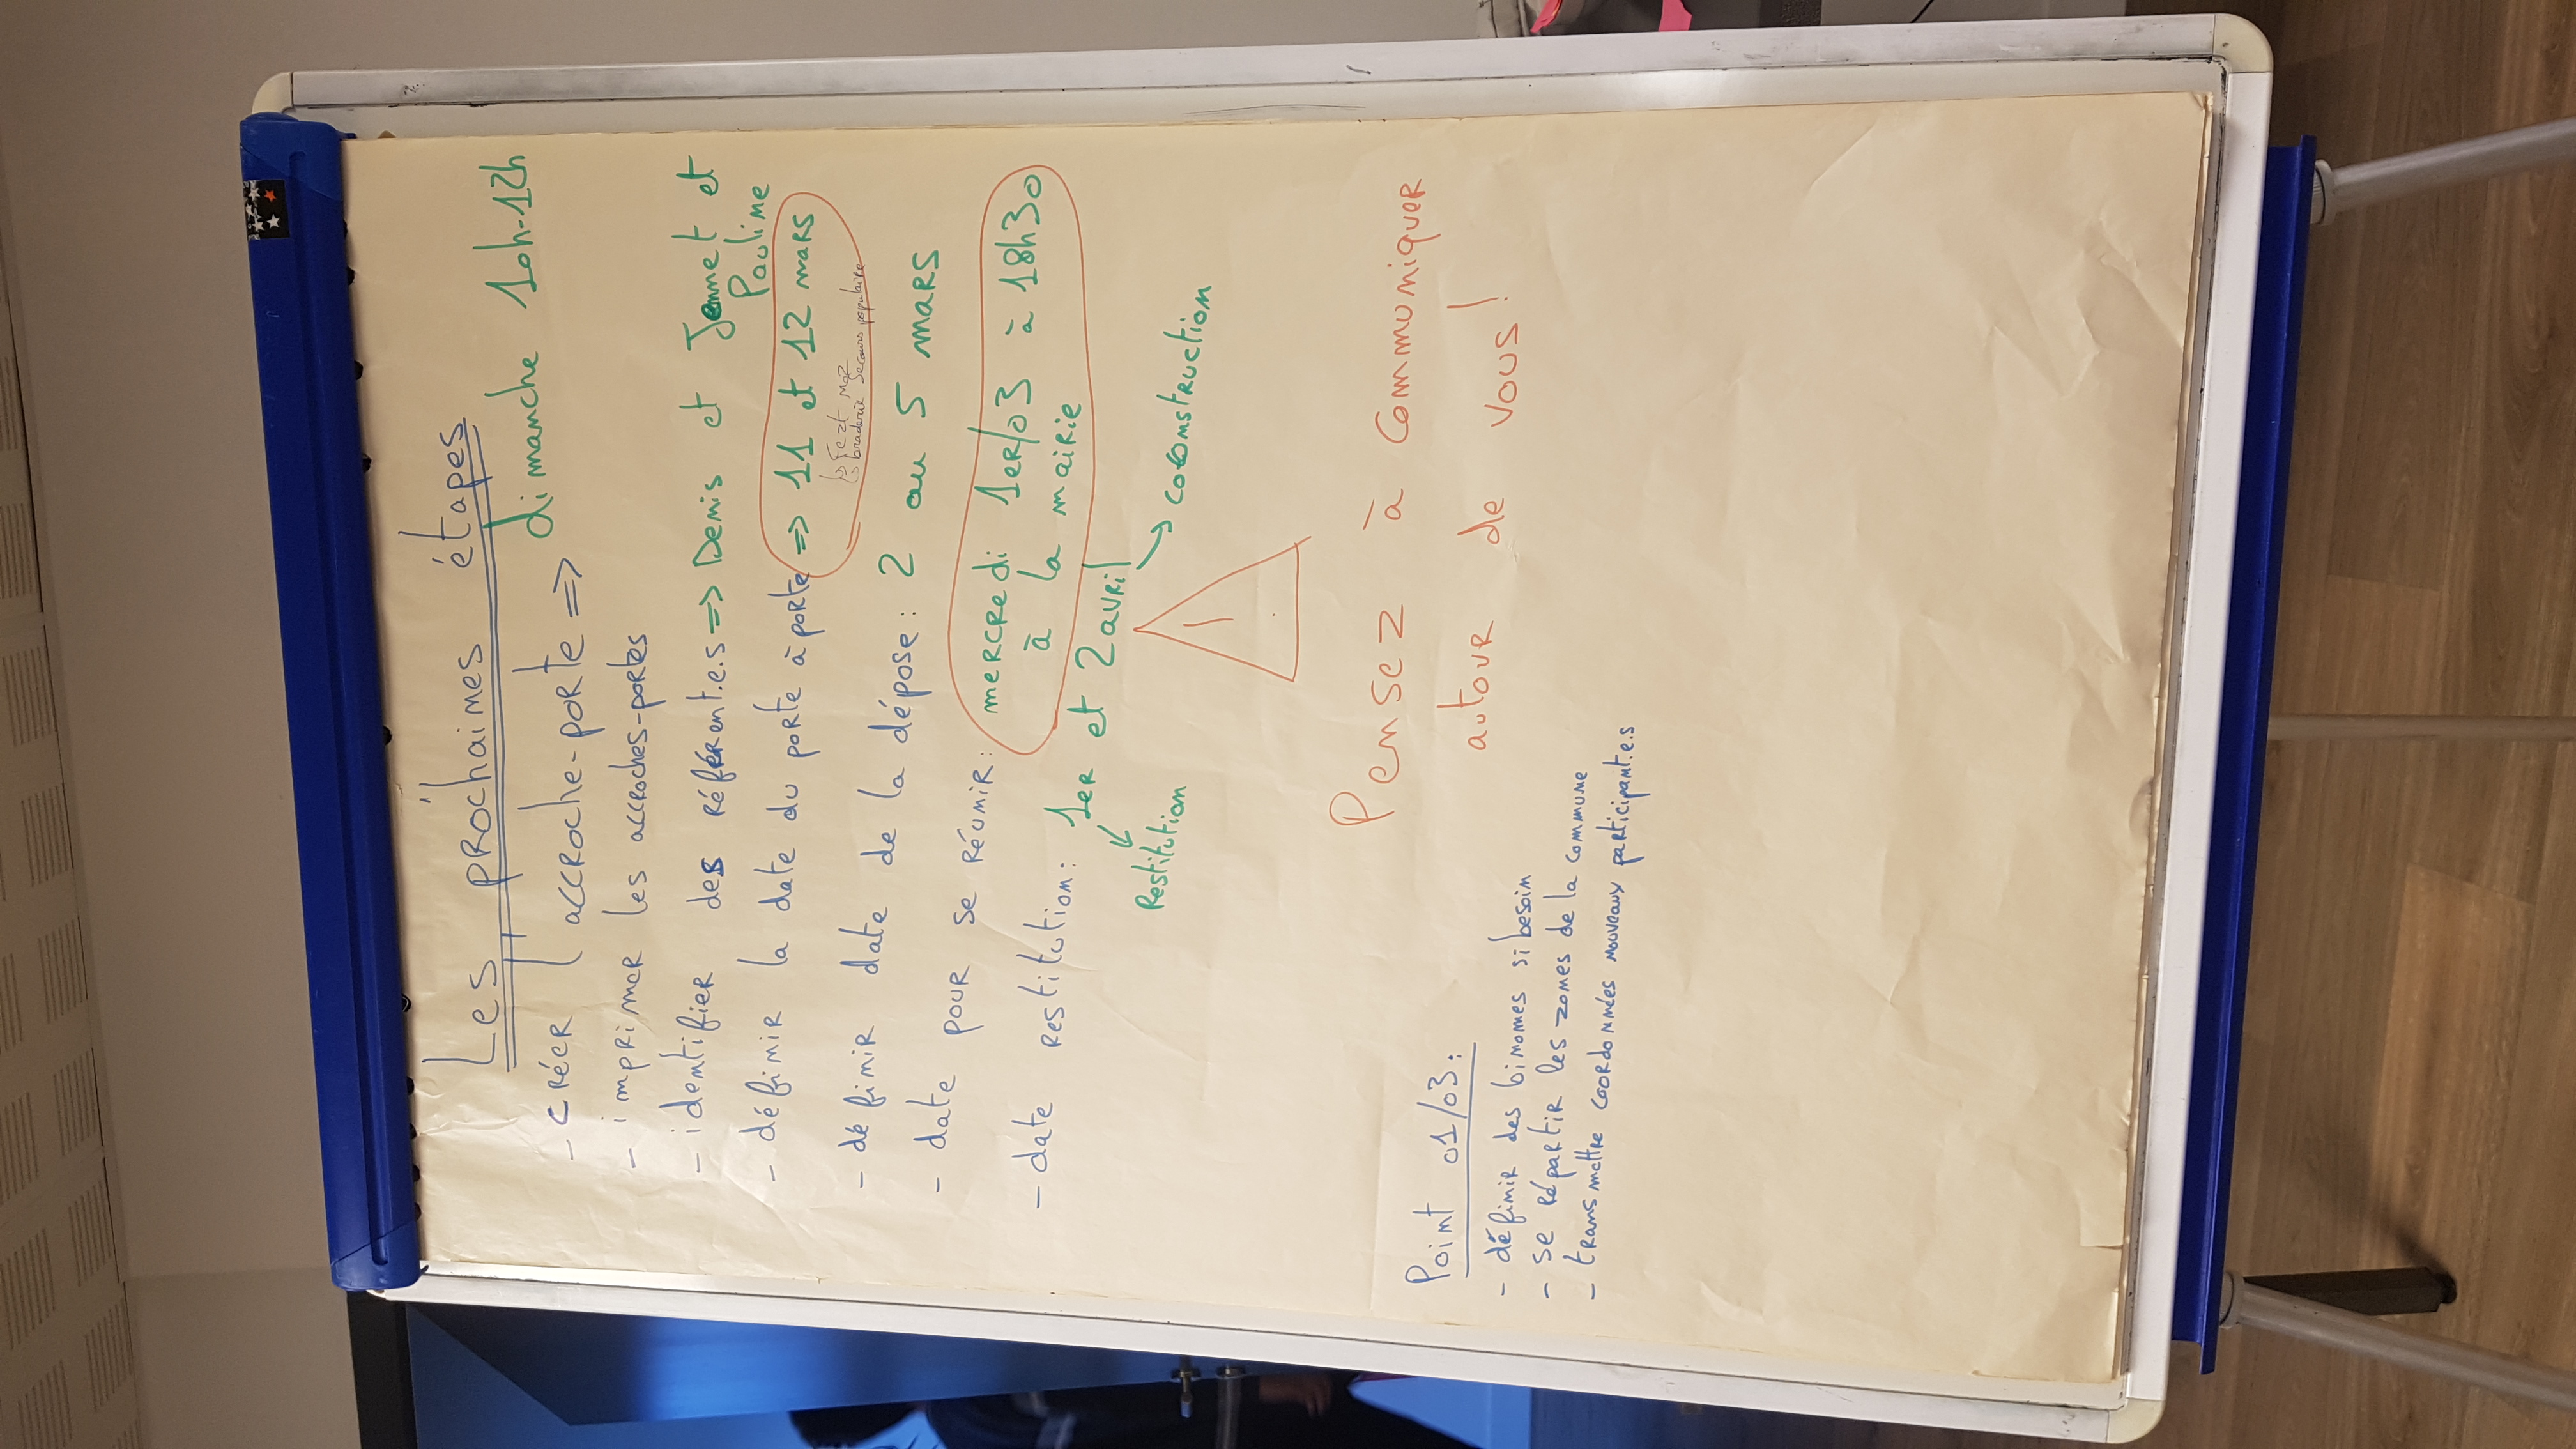 Les prochaines étapes
- créer l'accroche-porte => dimanche 10h-12h
- imprimer les accroches-portes
- identifier des référent.e.s => Denis et Jennet et
Pauline
- définir la date du porte à porte => 11 et 12 mars
braderie secours populaire
- définir date de la dépose : 2 au 5 mars
- date pour se réunir : mercredi 1er/03 à 18h30
à la mairie
- date restitution : 1er et 2 avril
Restitution
coconstruction
!
Pensez à communiquer
autour de vous !
Point 01/03 :
- définir des binomes si besoin
- se répartir les zones de la commune
- transmettre coordonnées nouveaux participant.e.s